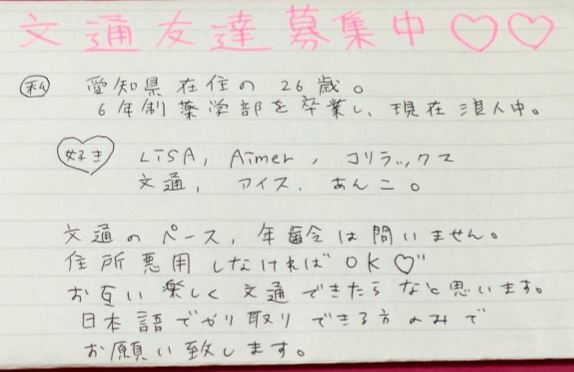 文通友達募集中♡♡
私 愛知県在住の26歳。
6年制薬学部を卒業し、現在浪人中。
好き LiSA, Aimer, コリラックマ
文通, アイス, あんこ。
文通のペース, 年齢は問いません。
住所悪用しなければOK♡
お互い楽しく文通できたらなと思います。
日本語でやり取りできる方のみで
お願い致します。